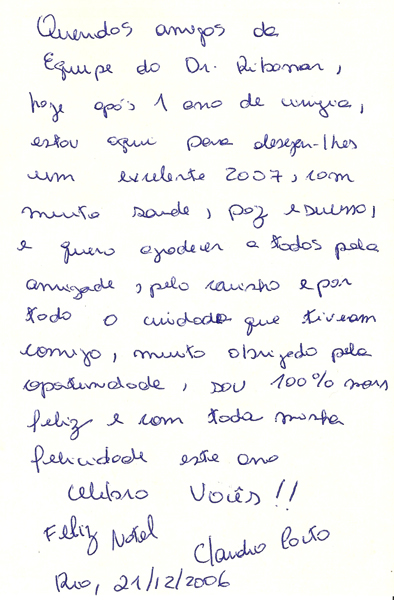 Queridos amigos da
Equipe do Dr. Ribamar,
hoje após 1 ano de cirurgia,
estou aqui para desejar-lhes
um excelente 2007, com
muito saude, paz e sucesso,
e quero agradecer a todos pela
amizade, pelo carinho e por
todo o cuidado que tiveram
comigo, muito obrigado pela
oportunidade, sou 100% mais
feliz e com toda minha
felicidade este ano
celebro Vocês!!
Feliz Natal
Claudio Porto
Rio, 21/12/2006